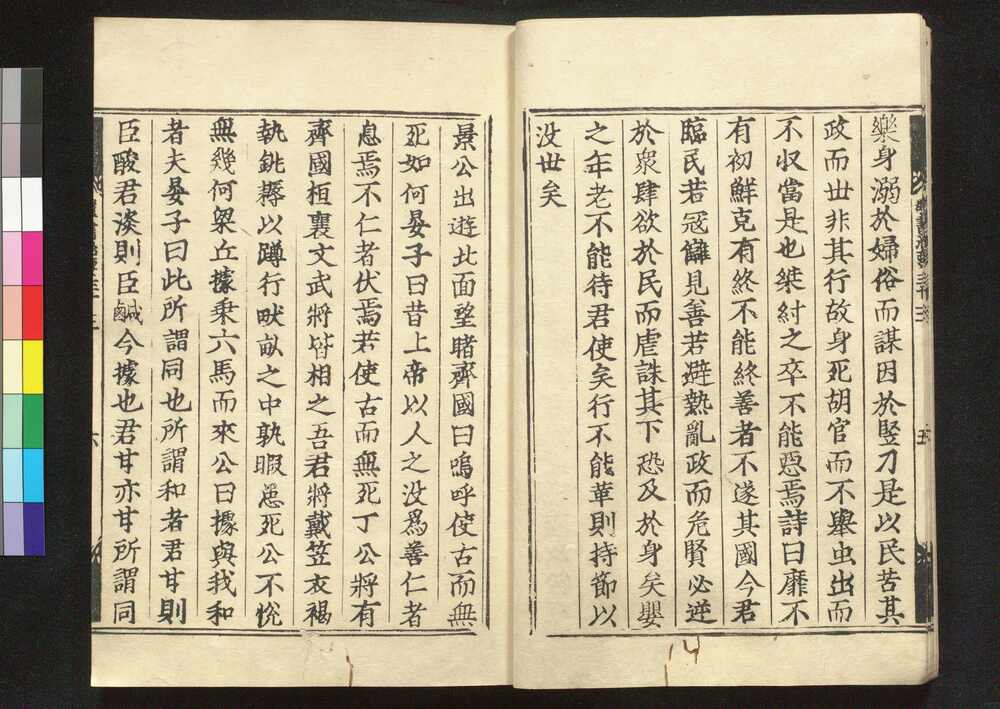 樂身溺於婦俗而謀因於竪刀是以民苦其
政而世非其行故身死胡宮而不舉虫出而
不収當是也桀紂之卒不能惡焉詩曰靡不
有初鮮克有終不能終善者不遂其國今君
臨民若寇讎見善若避熱亂政而危賢必逆
於衆肆欲於民而虐誅其下恐及於身矣嬰
之年老不能待君使矣行不能革則持節以
没世矣
景公出遊北面望睹齊國曰嗚呼使古而無
死如何晏子曰昔上帝以人之没爲善仁者
息焉不仁者伏焉若使古而無死丁公將有
齊國桓襄文武將皆相之吾君將戴笠衣褐
執銚耨以蹲行畎畝之中孰暇患死公不悅
無幾何梁丘據乘六馬而來公曰據與我和
者夫晏子曰此所謂同也所謂和者君甘則
臣酸君淡則臣鹹今據也君甘亦甘所謂同
六